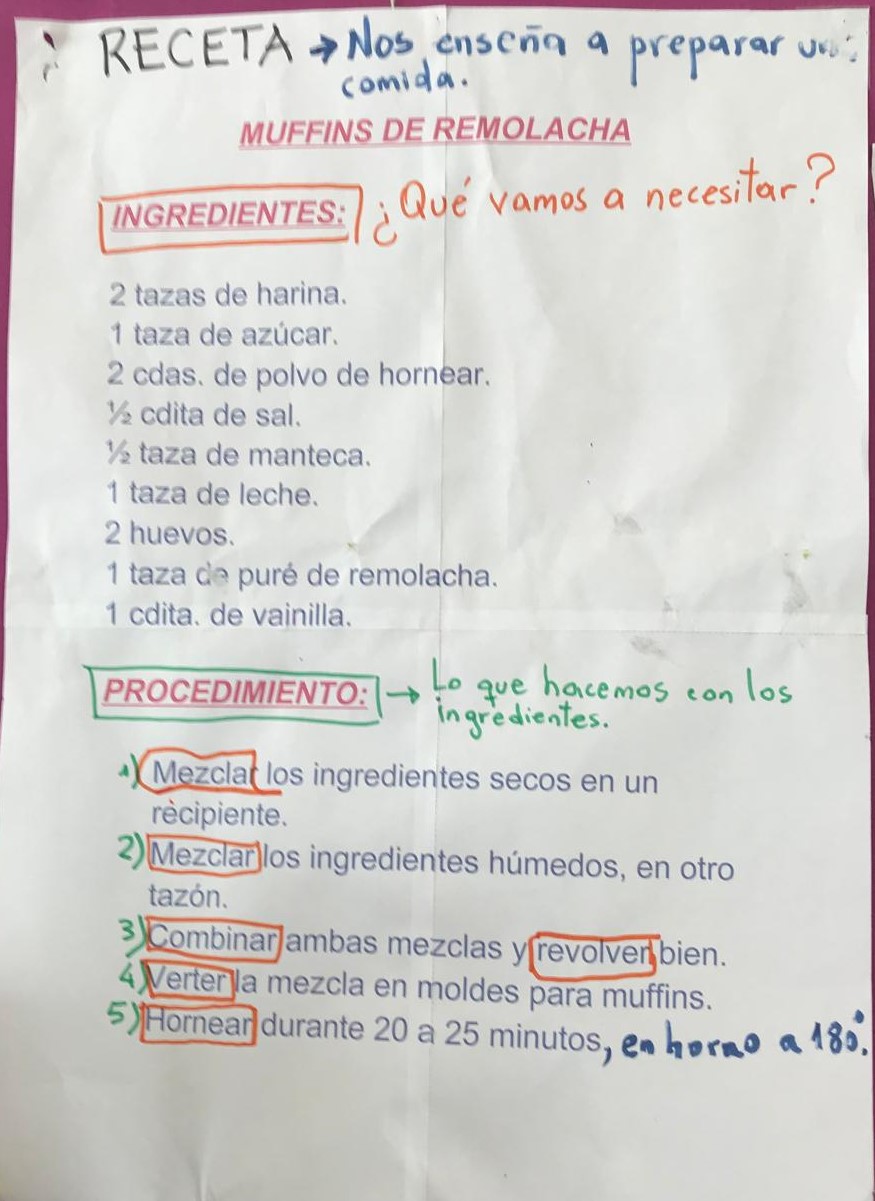 RECETA → Nos enseña a preparar
comida.
MUFFINS DE REMOLACHA
INGREDIENTES: ¿Qué vamos a necesitar?
2 tazas de harina.
1 taza de azúcar.
2 cdas. de polvo de hornear.
½ cdita de sal.
½ taza de manteca.
1 taza de leche.
2 huevos.
1 taza de puré de remolacha.
1 cdita. de vainilla.
PROCEDIMIENTO: → Lo que hacemos con los
ingredientes.
1) Mezclar los ingredientes secos en un
recipiente.
2) Mezclar los ingredientes húmedos, en otro
tazón.
3) Combinar ambas mezclas y revolver bien.
4) Verter la mezcla en moldes para muffins.
5) Hornear durante 20 a 25 minutos, en horno a 180°.